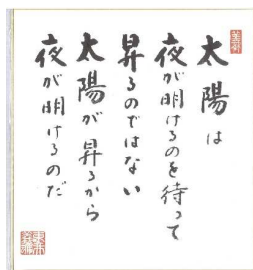 太陽は
夜が明けるのを待って
昇るのではない
太陽が昇るから
夜が明けるのだ